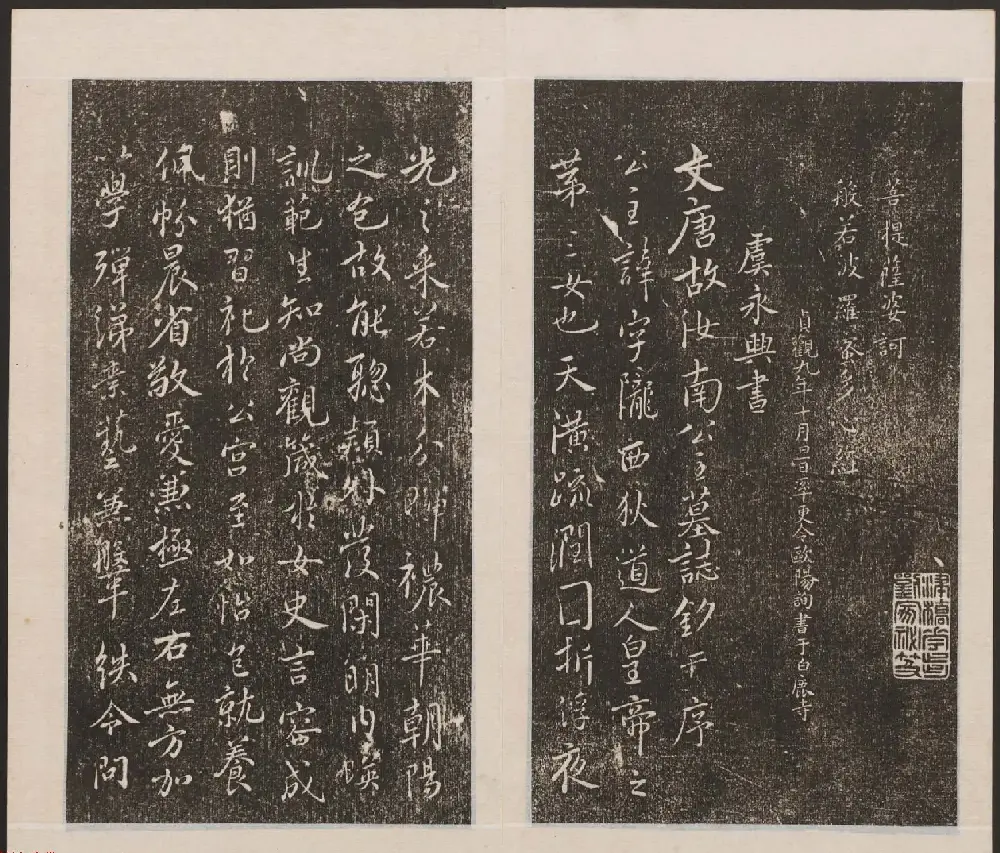 菩提薩婆訶
般若波羅蜜多心經
貞觀九年十月旦日率更令歐陽詢書于白鹿寺
虞永興書
大唐故汝南公主墓誌銘并序
公主諱字隴西狄道人皇帝之
第三女也天潢疏潤囗折浮夜
光之采若木分暉穠華朝陽
之色故能聰穎外發閑明內暎
訓範生知尚觀箴於女史言容成
則猶習礼於公宮至如怡色就養
佩帉晨省敬愛兼極左右無方加
以學殫綈素藝兼鞶紩令問